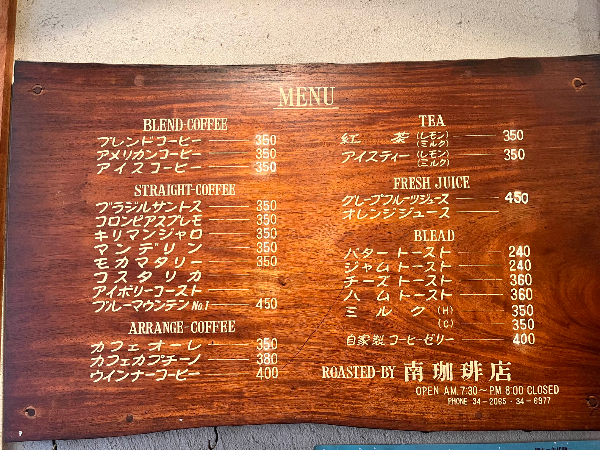 MENU
BLEND-COFFEE
ブレンドコーヒー 350
アメリカンコーヒー 350
アイスコーヒー 350
STRAIGHT-COFFEE
ブラジルサントス 350
コロンビアスプレモ 350
キリマンジャロ 350
マンデリン 350
モカマタリー 350
コスタリカ
アイボリーコースト
ブルーマウンテンNo.1 450
ARRANGE-COFFEE
カフェオーレ 350
カフェカプチーノ 380
ウインナーコーヒー 400
TEA
紅茶 (レモン) (ミルク) 350
アイスティー (レモン) (ミルク) 350
FRESH JUICE
グレープフルーツジュース 450
オレンジジュース
BLEAD
バタートースト 240
ジャムトースト 240
チーズトースト 360
ハムトースト 360
ミルク (H) 350
(C) 350
自家製コーヒーゼリー 400
ROASTED BY 南珈琲店
OPEN AM.7:30～PM.8:00 CLOSED
PHONE 34-2065・34-6977